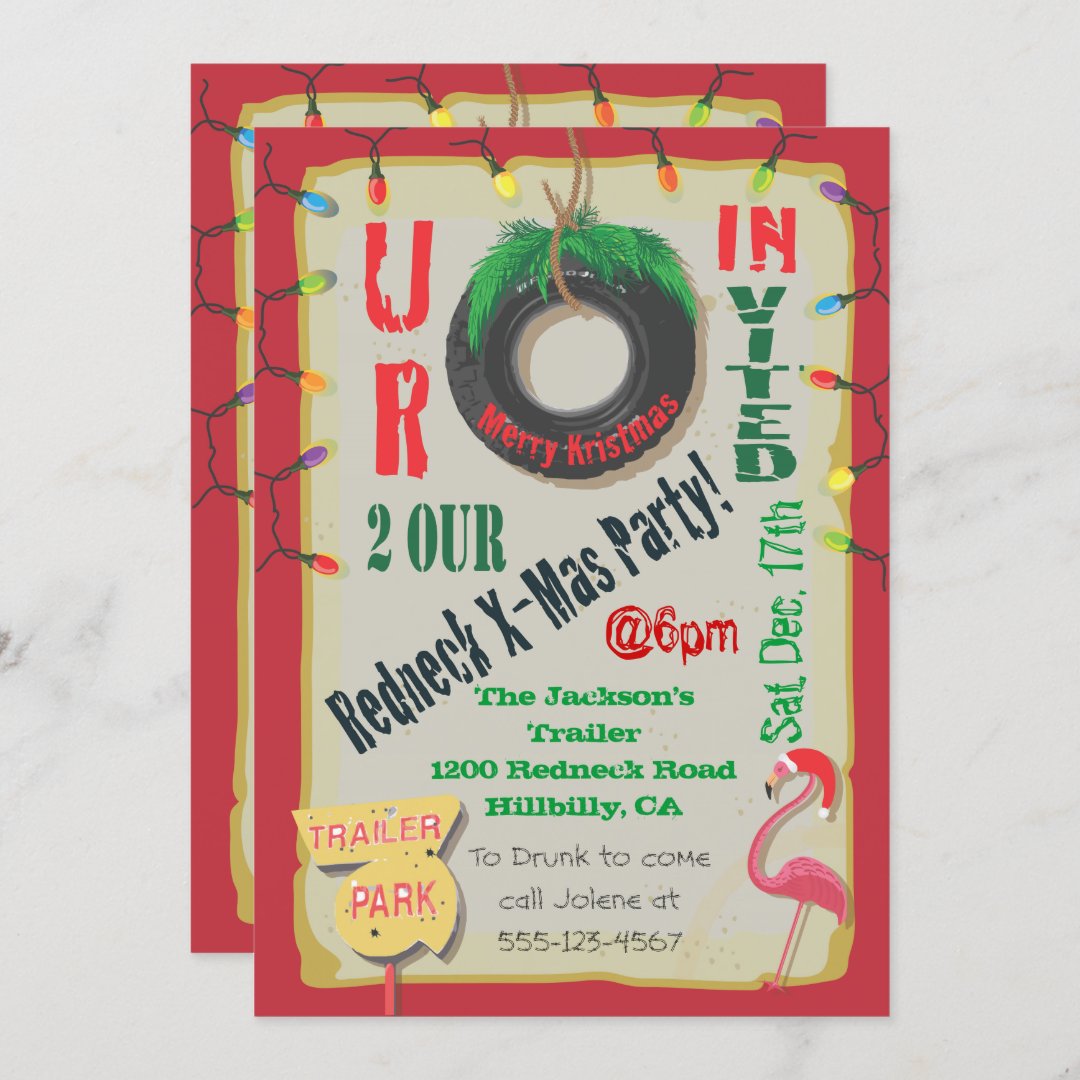 U
R
IN
VITED
Merry Kristmas
2 OUR
Redneck X-Mas Party!
@6pm
Sat Dec, 17th
The Jackson's
Trailer
1200 Redneck Road
Hillbilly, CA
TRAILER
PARK
To Drunk to come
call Jolene at
555-123-4567